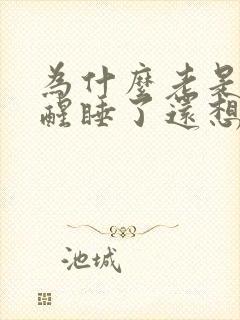 為什麼老是
醒睡了還想
池城